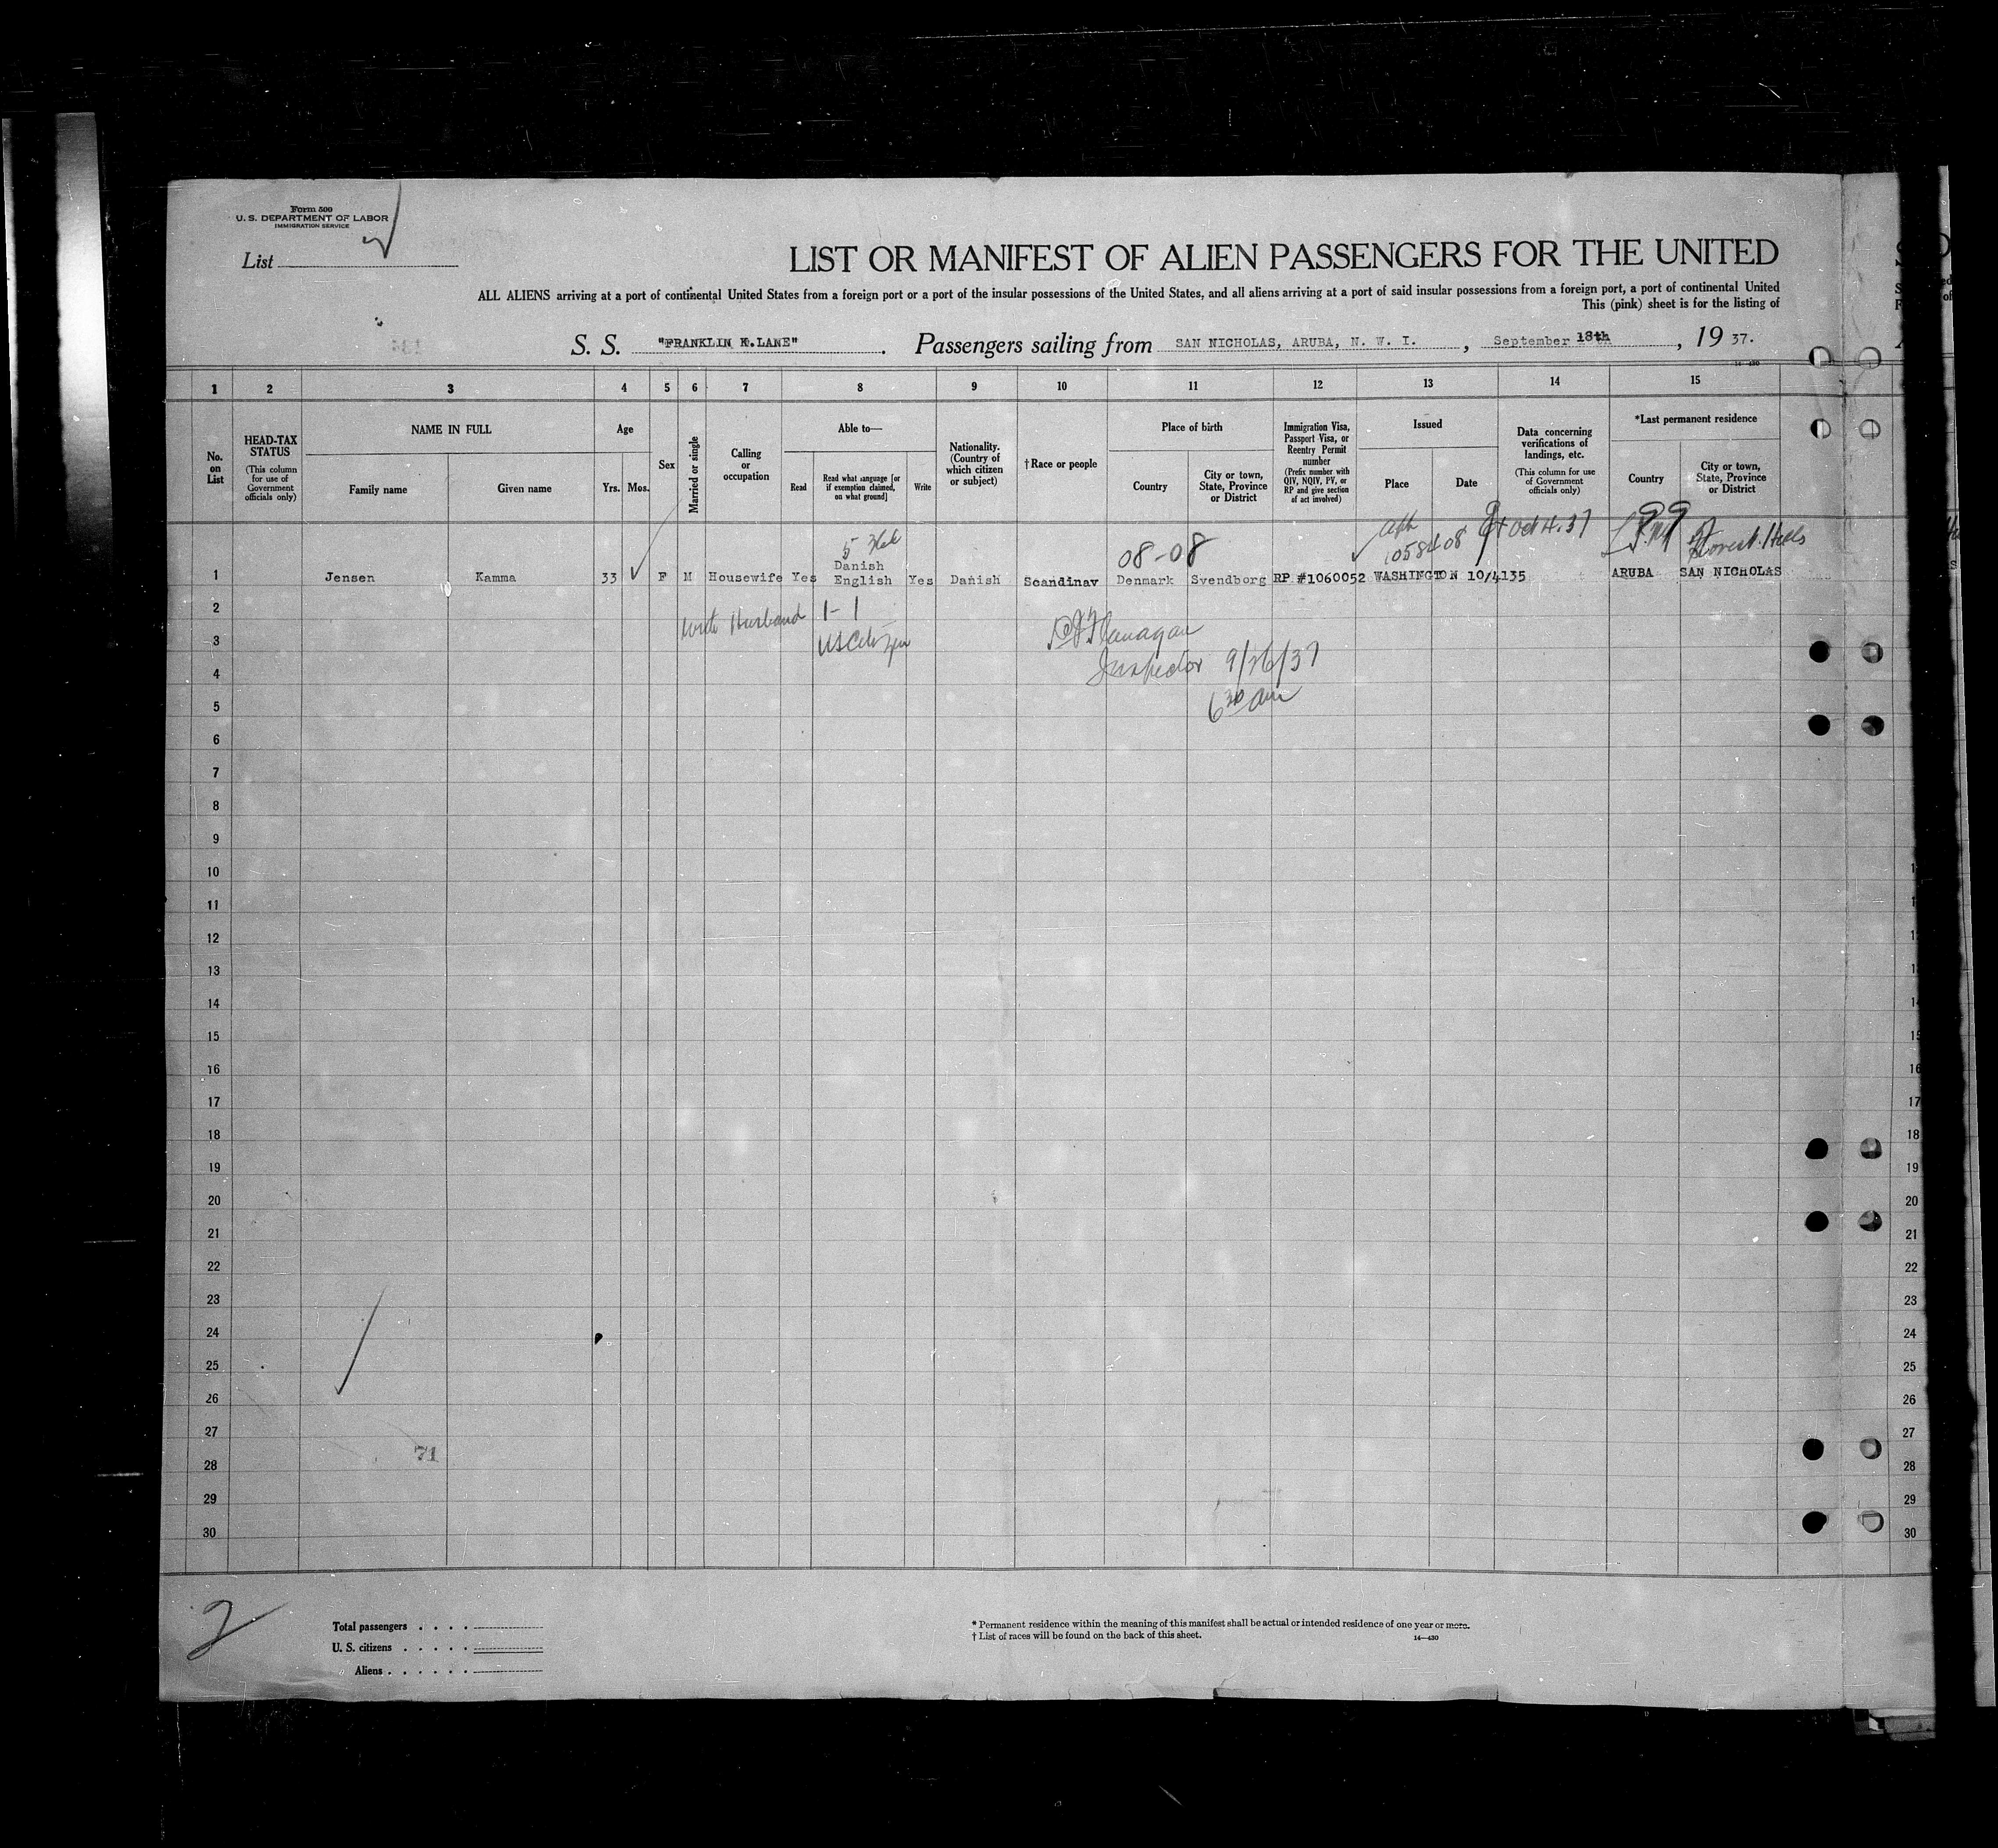 Form 500
U. S. DEPARTMENT OF LABOR
IMMIGRATION SERVICE
List
LIST OR MANIFEST OF ALIEN PASSENGERS FOR THE UNITED
ALL ALIENS arriving at a port of continental United States from a foreign port or a port of the insular possessions of the United States, and all aliens arriving at a port of said insular possessions from a foreign port, a port of continental United
This (pink) sheet is for the listing of
S. S. "FRANKLIN K. LANE". Passengers sailing from SAN NICHOLAS, ARUBA, N. W. I. , September 18th , 19 37.
1 2 3 4 5 6 7 8 9 10 11 12 13 14 15
No. on List
HEAD-TAX STATUS (This column for use of Government officials only)
NAME IN FULL
Family name
Given name
Age
Yrs. Mos.
Sex
Married or single
Calling or occupation
Able to—
Read
Read what language [or if exemption claimed, on what ground]
Write
Nationality. (Country of which citizen or subject)
†Race or people
Place of birth
Country
City or town, State, Province or District
Immigration Visa, Passport Visa, or Reentry Permit number (Prefix number with QIV, NQIV, PV, or RP and give section of act involved)
Issued
Place
Date
Data concerning verifications of landings, etc. (This column for use of Government officials only)
*Last permanent residence
Country
City or town, State, Province or District
08-08
Oct 4.37
99
Forest Hills
1 Jensen Kamma 33 F M Housewife Yes Danish English Yes Danish Scandinav Denmark Svendborg RP #1060052 WASHINGTON 10/4135 ARUBA SAN NICHOLAS
2
Husband 1-1
3
US Citizen
Flanagan
4
Inspector 9/26/37
5
6 30 am
6
7
8
9
10
11
12
13
14
15
16
17
18
19
20
21
22
23
24
25
26
27
71
28
29
30
2
Total passengers
U. S. citizens
Aliens
* Permanent residence within the meaning of this manifest shall be actual or intended residence of one year or more.
† List of races will be found on the back of this sheet.
14—430
15
16
17
18
19
20
21
22
23
24
25
26
27
28
29
30